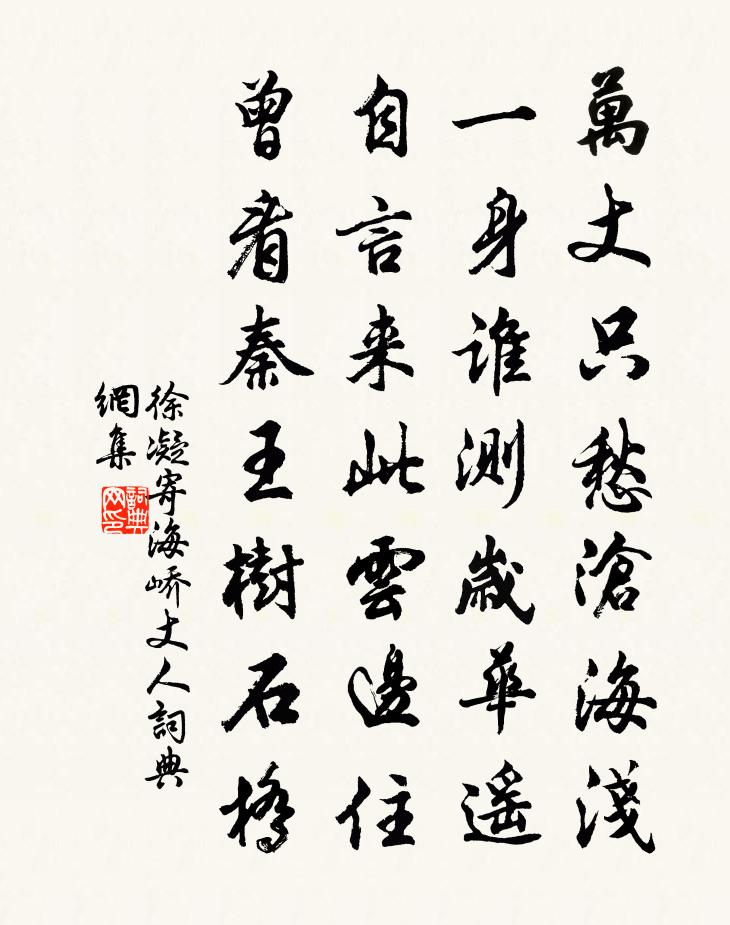 萬丈只愁滄海淺
一身誰測歲華遙
自言来此雲邊住
曾看秦王樹石橋
徐凝寄海嶠丈人詞典
網集
詞典网印